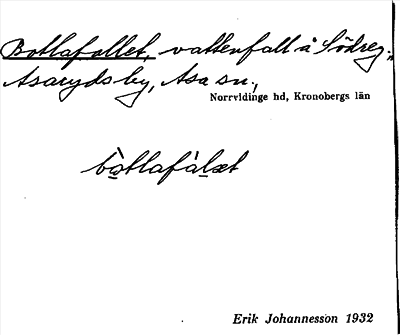 Botlafallet, vattenfall å Södreg:n
Asaryds by, Asa sn.,
Norrvidinge hd, Kronobergs län
bòtlafàlæt
Erik Johannesson 1932